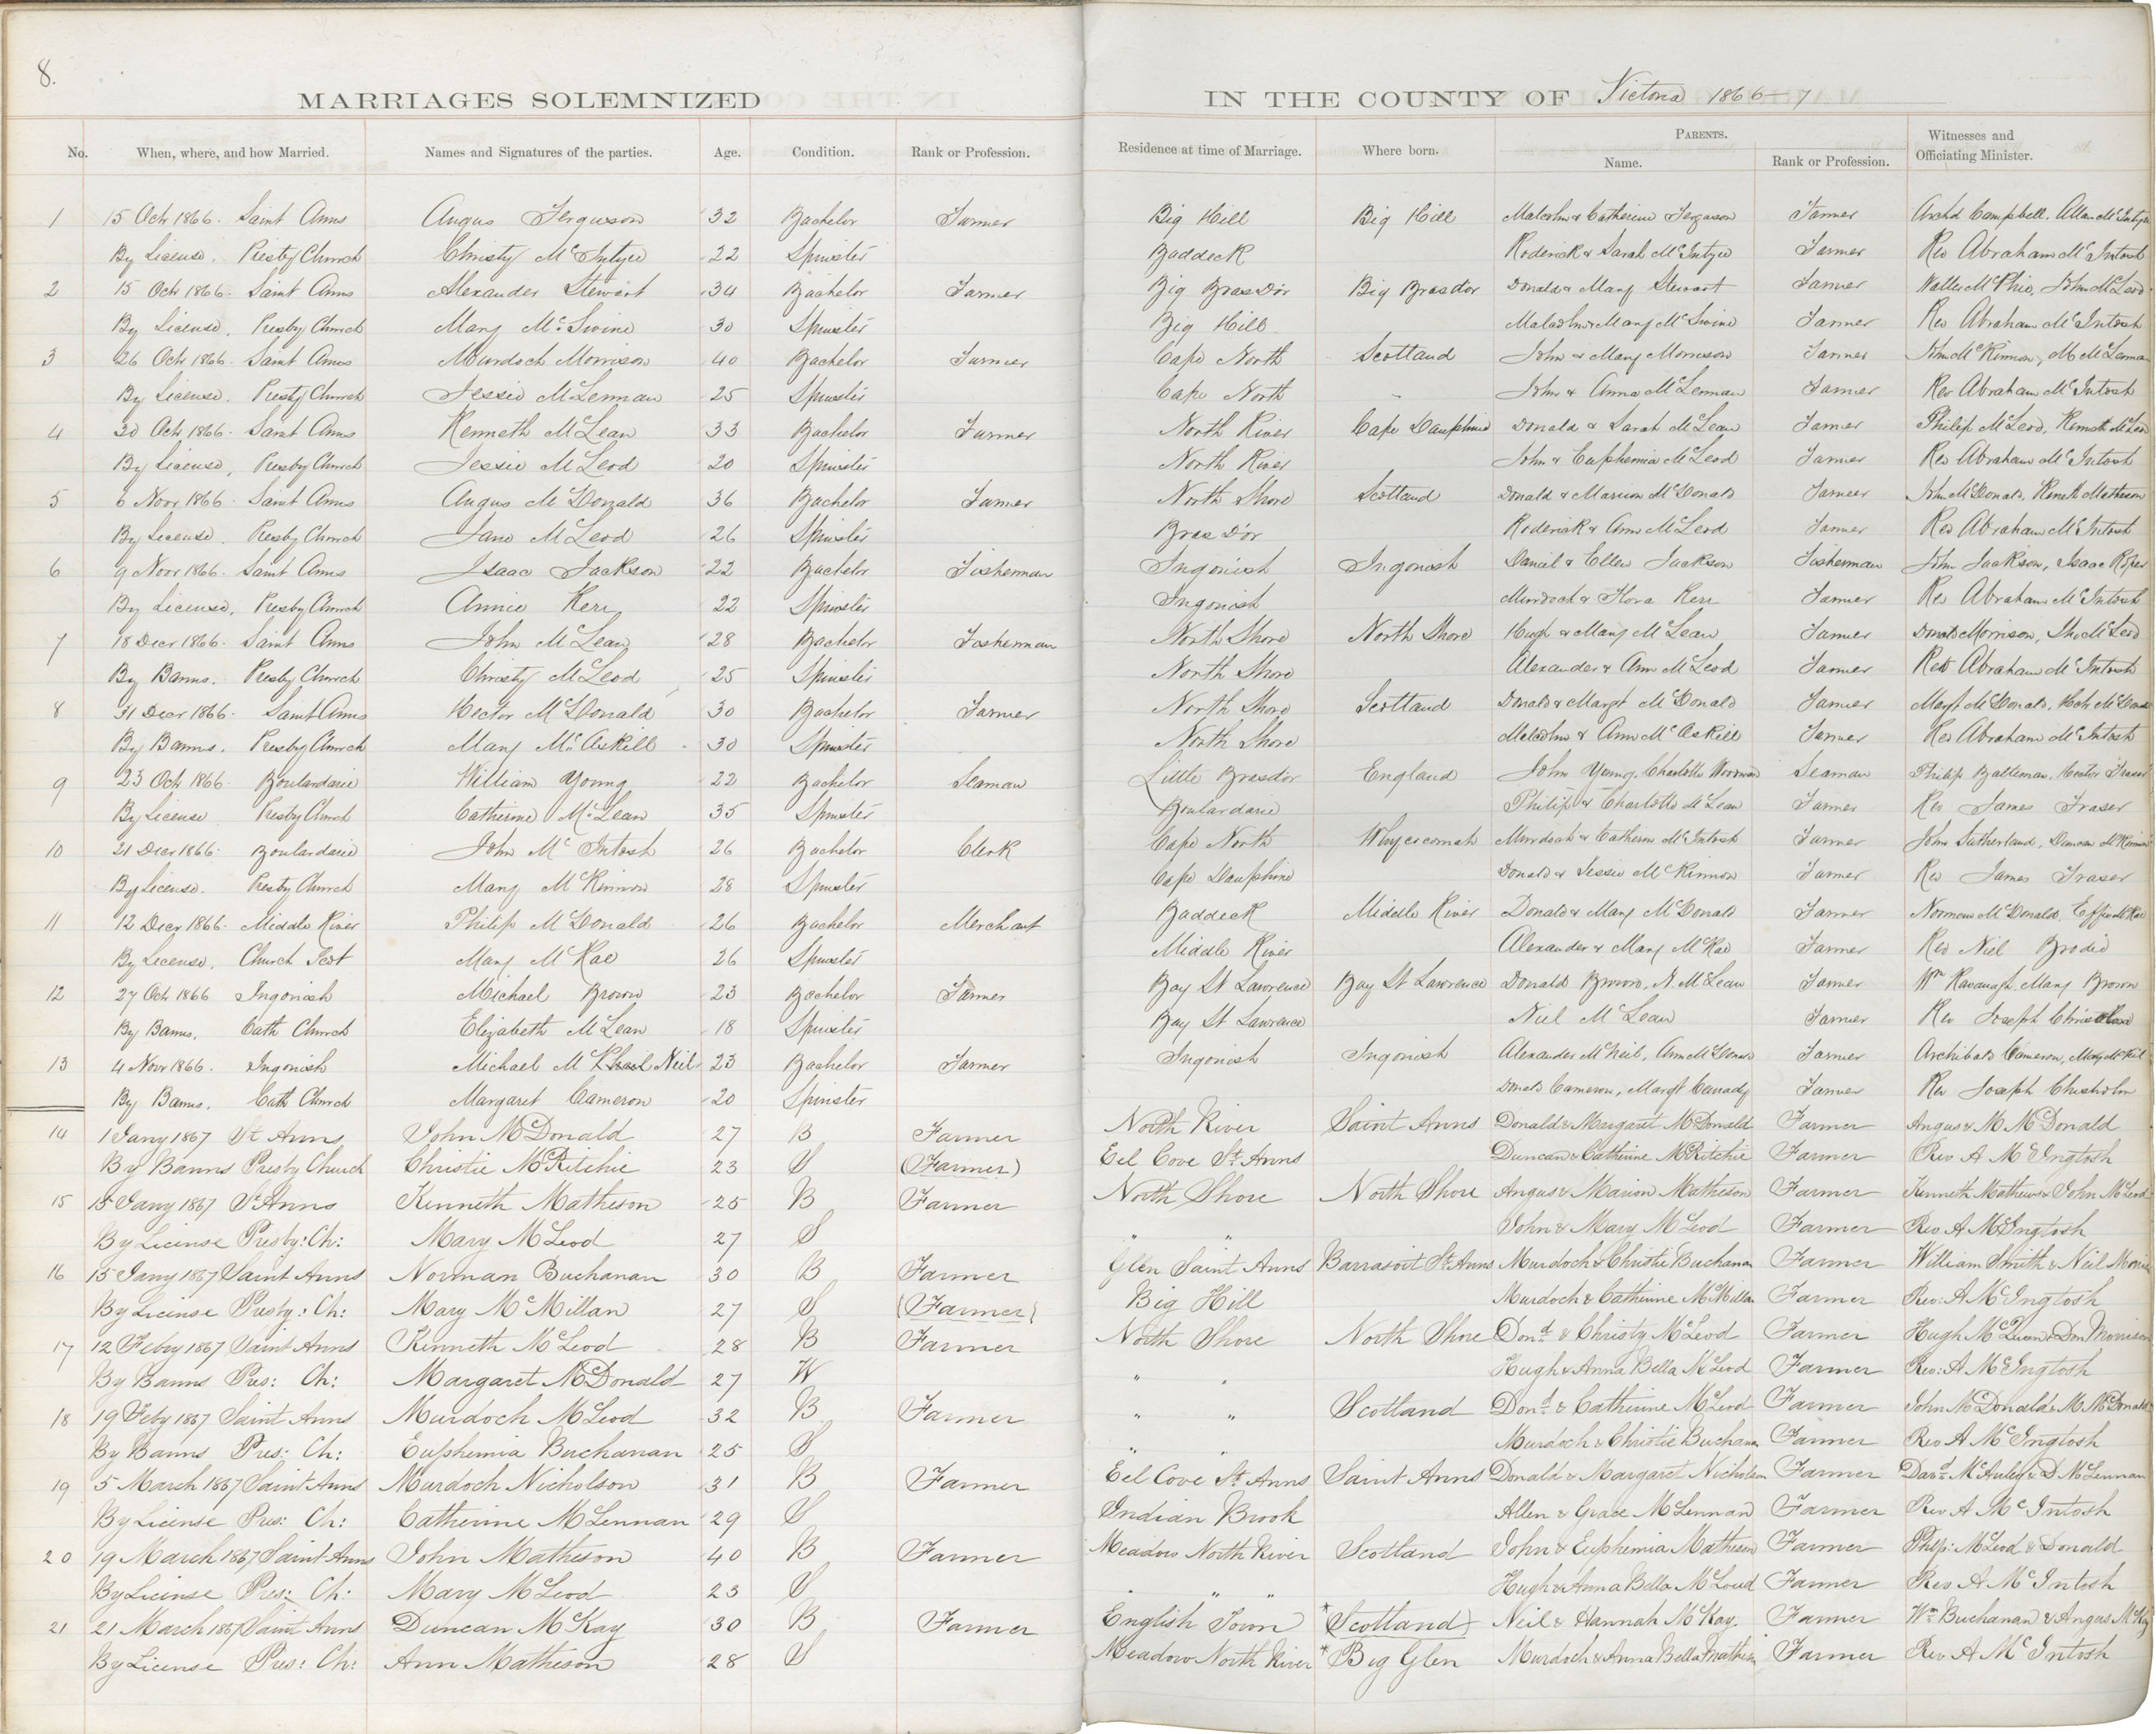 8.
MARRIAGES SOLEMNIZED IN THE COUNTY OF Victoria 1866-7
No. When, where, and how Married. Names and Signatures of the parties. Age. Condition. Rank or Profession. Residence at time of Marriage. Where born. PARENTS. Name. Rank or Profession. Witnesses and Officiating Minister.
1 15 Octr 1866. Saint Anns Angus Ferguson 32 Bachelor Farmer Big Hill Big Hill Malcolm & Catherine Ferguson Farmer Archd Campbell. Allan McIntyre
By License. Presby Church Christy McIntyre 22 Spinster Baddeck Roderick & Sarah McIntyre Farmer Rev Abraham McIntosh
2 15 Octr 1866. Saint Anns Alexander Stewart 34 Bachelor Farmer Big Bras Dor Big Brasdor Donald & Mary Stewart Farmer McPhie, John McLeod
By License. Presby Church Mary McSwine 30 Spinster Big Hill Malcolm & Mary McSwine Farmer Rev Abraham McIntosh
3 26 Octr 1866. Saint Anns Murdoch Morrison 40 Bachelor Farmer Cape North Scotland John & Mary Morrison Farmer John McKinnon, M McLennan
By License. Presby Church Jessie McLennan 25 Spinster Cape North - John & Anna McLennan Farmer Rev Abraham McIntosh
4 30 Octr 1866. Saint Anns Kenneth McLean 33 Bachelor Farmer North River Cape Dauphine Donald & Sarah McLean Farmer Philip McLeod, Kenneth McLean
By License, Presby Church Jessie McLeod 20 Spinster North River John & Euphemia McLeod Farmer Rev Abraham McIntosh
5 6 Novr 1866. Saint Anns Angus McDonald 36 Bachelor Farmer North Shore Scotland Donald & Marion McDonald Farmer John McDonald, Kenneth Matheson
By License. Presby Church Jane McLeod 26 Spinster Bras Dor Roderick & Ann McLeod Farmer Rev Abraham McIntosh
6 9 Novr 1866. Saint Anns Isaac Jackson 22 Bachelor Fisherman Ingonish Ingonish Daniel & Ellen Jackson Fisherman John Jackson, Isaac Roper
By License, Presby Church Annie Kerr 22 Spinster Ingonish Murdoch & Flora Kerr Farmer Rev Abraham McIntosh
7 18 Decr 1866. Saint Anns John McLean 28 Bachelor Fisherman North Shore North Shore Hugh & Mary McLean Farmer Donald Morrison, McLeod
By Banns. Presby Church Christy McLeod 25 Spinster North Shore Alexander & Ann McLeod Farmer Rev Abraham McIntosh
8 31 Decr 1866. Saint Anns Hector McDonald 30 Bachelor Farmer North Shore Scotland Donald & Margt McDonald Farmer Margt McDonald, McDonald
By Banns. Presby Church Mary McAskill 30 Spinster North Shore Malcolm & Ann McAskill Farmer Rev Abraham McIntosh
9 23 Octr 1866. Boulardarie William Young 22 Bachelor Seaman Little Brasdor England John Young, Charlotte Seaman Philip Balteman, Hector Fraser
By License Presby Church Catherine McLean 35 Spinster Boulardarie Philip & Charlotte McLean Farmer Rev James Fraser
10 21 Decr 1866. Boulardarie John McIntosh 26 Bachelor Clerk Cape North Whycocomah Murdoch & Catherine McIntosh Farmer John Sutherland, Duncan McKinnon
By License. Presby Church Mary McKinnon 28 Spinster Cape Dauphine Donald & Jessie McKinnon Farmer Rev James Fraser
11 12 Decr 1866. Middle River Philip McDonald 26 Bachelor Merchant Baddeck Middle River Donald & Mary McDonald Farmer Norman McDonald, Effie McRae
By License. Church Scot Mary McRae 26 Spinster Middle River Alexander & Mary McRae Farmer Rev Niel Brodie
12 27 Octr 1866 Ingonish Michael Brown 23 Bachelor Farmer Bay St Lawrence Bay St Lawrence Donald Brown, N. McLean Farmer Wm Kavanagh, Mary Brown
By Banns. Cath Church Elizabeth McLean 18 Spinster Bay St Lawrence Niel McLean Farmer Rev Joseph Chisholm
13 4 Novr 1866. Ingonish Michael McPhail Neil 23 Bachelor Farmer Ingonish Ingonish Alexander McNeil, Ann McDonald Farmer Archibald Cameron, Mary McNeil
By Banns. Cath Church Margaret Cameron 20 Spinster Donald Cameron, Margt Canady Farmer Rev Joseph Chisholm
14 1 Jany 1867 St Anns John McDonald 27 B Farmer North River Saint Anns Donald & Margaret McDonald Farmer Angus & M McDonald
By Banns Presby Church Christie McRitchie 23 S (Farmer) Eel Cove St Anns Duncan & Catherine McRitchie Farmer Rev A McIngtosh
15 15 Jany 1867 St Anns Kenneth Matheson 25 B Farmer North Shore North Shore Angus & Marion Matheson Farmer Kenneth Mathewson John McLeod
By License Presby: Ch: Mary McLeod 27 S " " John & Mary McLeod Farmer Rev A McIngtosh
16 15 Jany 1867 Saint Anns Norman Buchanan 30 B Farmer Glen Saint Anns Barrasoit St Anns Murdoch & Christie Buchanan Farmer William Smith & Neil
By License Presby: Ch: Mary McMillan 27 S (Farmer) Big Hill Murdoch & Catherine McMillan Farmer Rev: A McIngtosh
17 12 Feby 1867 Saint Anns Kenneth McLeod 28 B Farmer North Shore North Shore Dond & Christy McLeod Farmer Hugh McQueen & Don Morrison
By Banns Pres: Ch: Margaret McDonald 27 W " " Hugh & Anna Bella McLeod Farmer Rev: A McIngtosh
18 19 Feby 1867 Saint Anns Murdoch McLeod 32 B Farmer " " Scotland Dond & Catherine McLeod Farmer John McDonald & M McDonald
By Banns Pres: Ch: Euphemia Buchanan 25 S " " Murdoch & Christie Buchanan Farmer Rev A McIngtosh
19 5 March 1867 Saint Anns Murdoch Nicholson 31 B Farmer Eel Cove St Anns Saint Anns Donald & Margaret Nicholson Farmer Davd McAuley & D McLennan
By License Pres: Ch: Catherine McLennan 29 S Indian Brook Allen & Grace McLennan Farmer Rev A McIntosh
20 19 March 1867 Saint Anns John Matheson 40 B Farmer Meadow North River Scotland John & Euphemia Matheson Farmer Philp: McLeod & Donald
By License Pres: Ch: Mary McLeod 23 S " " " Hugh & Anna Bella McLoud Farmer Rev A McIntosh
21 21 March 1867 Saint Anns Duncan McKay 30 B Farmer English Town *(Scotland) Neil & Hannah McKay. Farmer Wm Buchanan & Angus McKay
By License Pres: Ch: Ann Matheson 28 S Meadow North River *Big Glen Murdoch & Anna Bella Matheson Farmer Rev A McIntosh